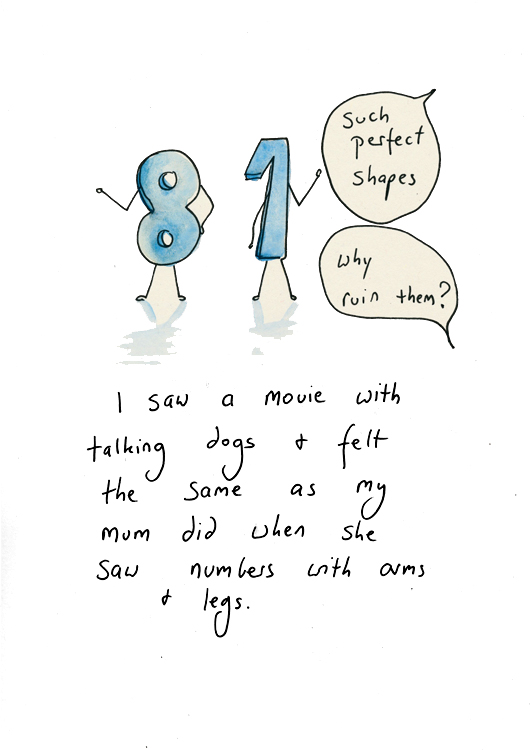 8 1
Such
perfect
shapes
why
ruin them?
I saw a movie with
talking dogs & felt
the same as my
mum did when she
saw numbers with arms
& legs.